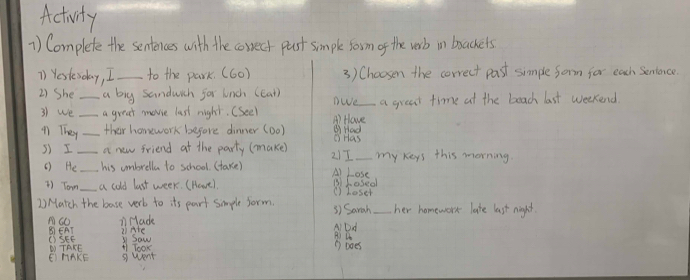 Activity
1) Complete the sentences with the correct past simple form of the verb in brackets.
1) Yesterday, I ___ to the park. (GO)
2) She ___ a big sandwich for lunch (eat)
3) we ___ a great movie last night. (see)
4) They ___ thar homework before dinner (Do)
5) I ___ a new friend at the party (make)
6) He ___ his umbrella to school. (take)
7) Tom ___ a cold last week. (Have)
2) Match the base verb to its past simple form.
A) GO 1) Made
B) EAT 2) Ate
C) SEE 3) Saw
D) TAKE 4) Took
E) MAKE 5) Went
3) Choosen the correct past simple form for each sentence.
1) we ___ a great time at the beach last weekend.
A) Have
B) Had
C) Has
2) I ___ my keys this morning.
A) Lose
B) Loseol
C) Loset
3) Sarah ___ her homework late last night.
A) Did
B)
C) Does